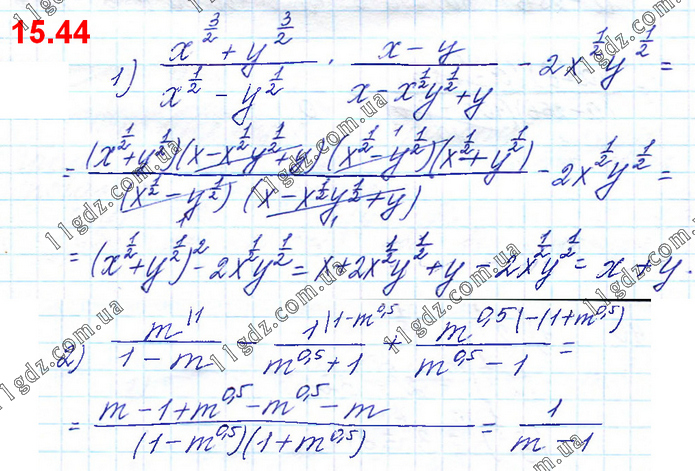 15.44
1) (x^(3/2) + y^(3/2))/(x^(1/2) - y^(1/2)) · (x - y)/(x - x^(1/2)y^(1/2) + y) - 2x^(1/2)y^(1/2) =
= ((x^(1/2) + y^(1/2))(x - x^(1/2)y^(1/2) + y)(x^(1/2) - y^(1/2))(x^(1/2) + y^(1/2)))/((x^(1/2) - y^(1/2))(x - x^(1/2)y^(1/2) + y)) - 2x^(1/2)y^(1/2) =
= (x^(1/2) + y^(1/2))^2 - 2x^(1/2)y^(1/2) = x + 2x^(1/2)y^(1/2) + y - 2x^(1/2)y^(1/2) = x + y.
2) m\1/(1 - m) - 1\1-m^0,5/(m^0,5 + 1) + m^0,5\-(1+m^0,5)/(m^0,5 - 1) =
= (m - 1 + m^0,5 - m^0,5 - m)/((1 - m^0,5)(1 + m^0,5)) = 1/(m - 1)
11gdz.com.ua